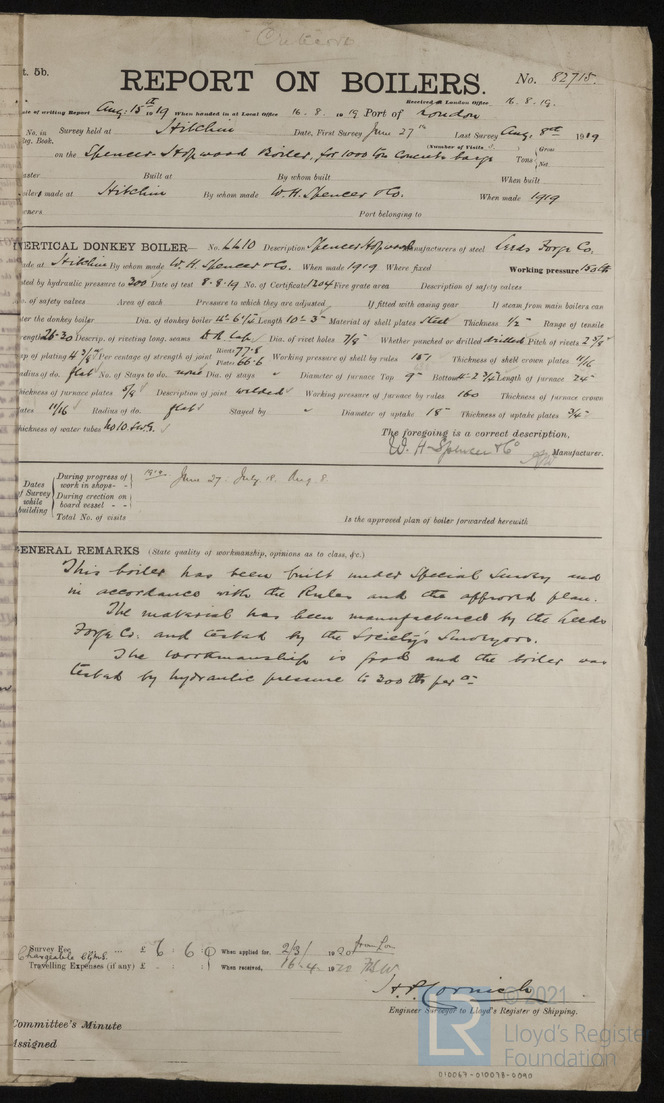 t. 5b.
REPORT ON BOILERS.
No. 82715.
Received at London Office 16.8.19.
ate of writing Report Aug. 15th 1919 When handed in at Local Office 16.8.1919 Port of London
No. in Survey held at Hitchin Date, First Survey June 27th Last Survey Aug. 8th 1919
eg. Book. (Number of Visits
on the Spencer-Hopwood Boiler, for 1000 ton concrete barge Tons Gross Net
aster Built at By whom built When built
oilers made at Hitchin By whom made W. H. Spencer & Co. When made 1919
wners Port belonging to
VERTICAL DONKEY BOILER— No. 4410 Description Spencer Hopwood Manufacturers of steel Leeds Forge Co.
ade at Hitchin By whom made W. H. Spencer & Co. When made 1919 Where fixed Working pressure 150 lb
sted by hydraulic pressure to 300 Date of test 8.8.19 No. of Certificate 1204 Fire grate area Description of safety valves
o. of safety valves Area of each Pressure to which they are adjusted If fitted with easing gear If steam from main boilers can
ter the donkey boiler Dia. of donkey boiler Length 10' 3" Material of shell plates Steel Thickness 1/2" Range of tensile
rength 26-30 Descrip. of riveting long. seams D.R. Lap Dia. of rivet holes 7/8" Whether punched or drilled drilled Pitch of rivets 2 5/8"
ap of plating Per centage of strength of joint Rivets 77.8 Plates 66.6 Working pressure of shell by rules 151 Thickness of shell crown plates 11/16
adius of do. flat No. of Stays to do. none Dia. of stays " Diameter of furnace Top 9" Bottom Length of furnace 24"
hickness of furnace plates 5/8 Description of joint welded Working pressure of furnace by rules 160 Thickness of furnace crown
ates 11/16 Radius of do. flat Stayed by " Diameter of uptake 18" Thickness of uptake plates 3/4"
hickness of water tubes No 10. S.W.G.
The foregoing is a correct description,
W. H. Spencer & Co Manufacturer.
Dates of Survey while building
During progress of work in shops - - 1919 June 27. July. 18. Aug. 8.
During erection on board vessel - -
Total No. of visits
Is the approved plan of boiler forwarded herewith
GENERAL REMARKS (State quality of workmanship, opinions as to class, &c.)
This boiler has been built under Special Survey and
in accordance with the Rules and the approved plan.
The material has been manufactured by the Leeds
Forge Co. and tested by the Society's Surveyors.
The workmanship is good and the boiler was
tested by hydraulic pressure to 300 lbs per □"
Survey Fee ... ... £ 6 : 6 : 0 When applied for, 2/3/1920
Chargeable
Travelling Expenses (if any) £ : : When received, 16-4-1920
H.P. Cornish
Engineer Surveyor to Lloyd's Register of Shipping.
Committee's Minute
Assigned
© 2021
Lloyd's Register
Foundation
LR
010067-010078-0090